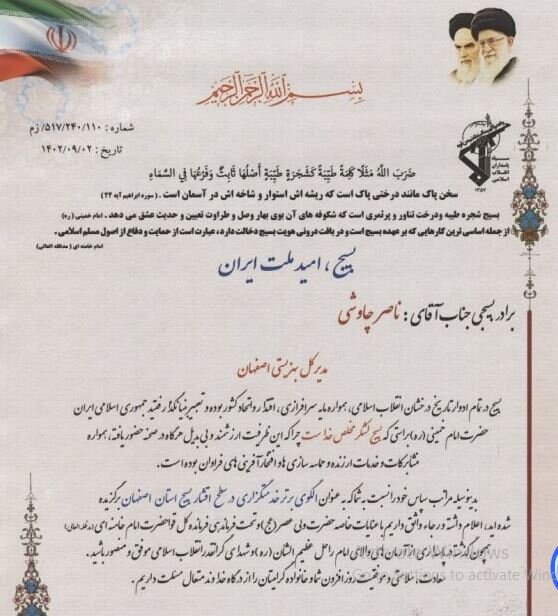 بسم الله الرحمن الرحیم
شماره : ۵۱۷/۲۴۰/۱۱۰/ز م
تاریخ : ۱۴۰۲/۰۹/۰۲
سپاه
پاسداران
انقلاب
اسلامی
۱۳۵۷
ضَرَبَ اللَّهُ مَثَلًا كَلِمَةً طَيِّبَةً كَشَجَرَةٍ طَيِّبَةٍ أَصْلُهَا ثَابِتٌ وَفَرْعُهَا فِي السَّمَاءِ
سخن پاک مانند درختی پاک است که ریشه اش استوار و شاخه اش در آسمان است . ( سوره ابراهیم آیه ۲۴ )
بسیج شجره طیبه و درخت تناور و پرثمری است که شکوفه های آن بوی بهار وصل و طراوت تعیین و حدیث عشق می دهد . امام خمینی ( ره )
از جمله اساسی ترین کارهایی که بر عهده بسیج است و در بافت درونی هویت بسیج دخالت دارد ، عبارت است از حمایت و دفاع از اصول مسلم اسلامی .
امام خامنه ای ( مدظله العالی )
بسیج ، امید ملت ایران
برادر بسیجی جناب آقای : ناصر چاوشی
مدیر کل بهزیستی اصفهان
بسیج در تمام ادوار تاریخ درخشان انقلاب اسلامی ، همواره مایه سرافرازی ، اقتدار و اتحاد کشور بوده و تعبیر بنیانگذار فقید جمهوری اسلامی ایران
حضرت امام خمینی (ره) براستی که بسیج لشکر مخلص خداست چرا که این ظرفیت ارزشمند و بی بدیل هرگاه در صحنه حضور یافته ، همواره
منشا برکات و خدمات ارزنده و حماسه سازی ها و افتخارآفرینی های فراوان بوده است .
بدینوسیله مراتب سپاس خود را نسبت به شما که به عنوان الگوی برتر خدمتگزاری در سطح اقشار بسیج استان اصفهان برگزیده
شده اند ، اعلام داشته و رجاء واثق داریم با عنایات خاصه حضرت ولی عصر (عج) و تحت فرماندهی فرمانده کل قوا حضرت امام خامنه ای (مدظله العالی)
همچون گذشته در پاسداری از آرمان های والای امام راحل عظیم الشان (ره) و شهدای گرانقدر انقلاب اسلامی موفق و منصور باشید .
سعادت ، سلامتی و موفقیت روزافزون شما و خانواده گرامیتان را از درگاه خداوند متعال مسئلت داریم .
Windows
to activate Win